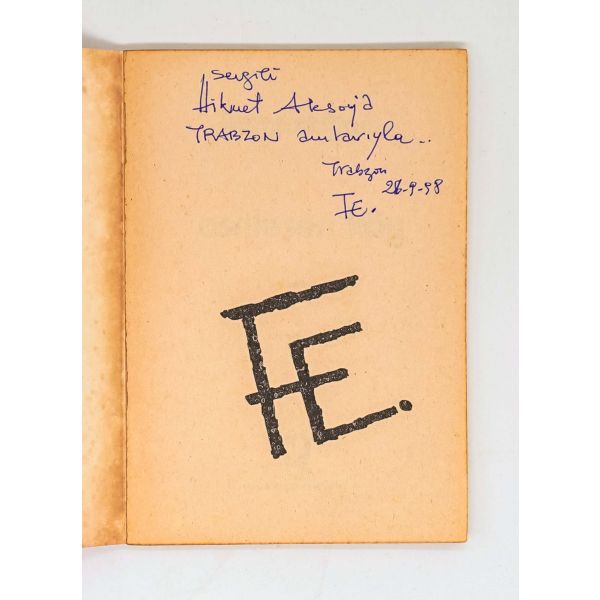 Sevgili
Hikmet Aksoy'a
TRABZON anılarıyla..
Trabzon
26-9-98
FE.
FE.